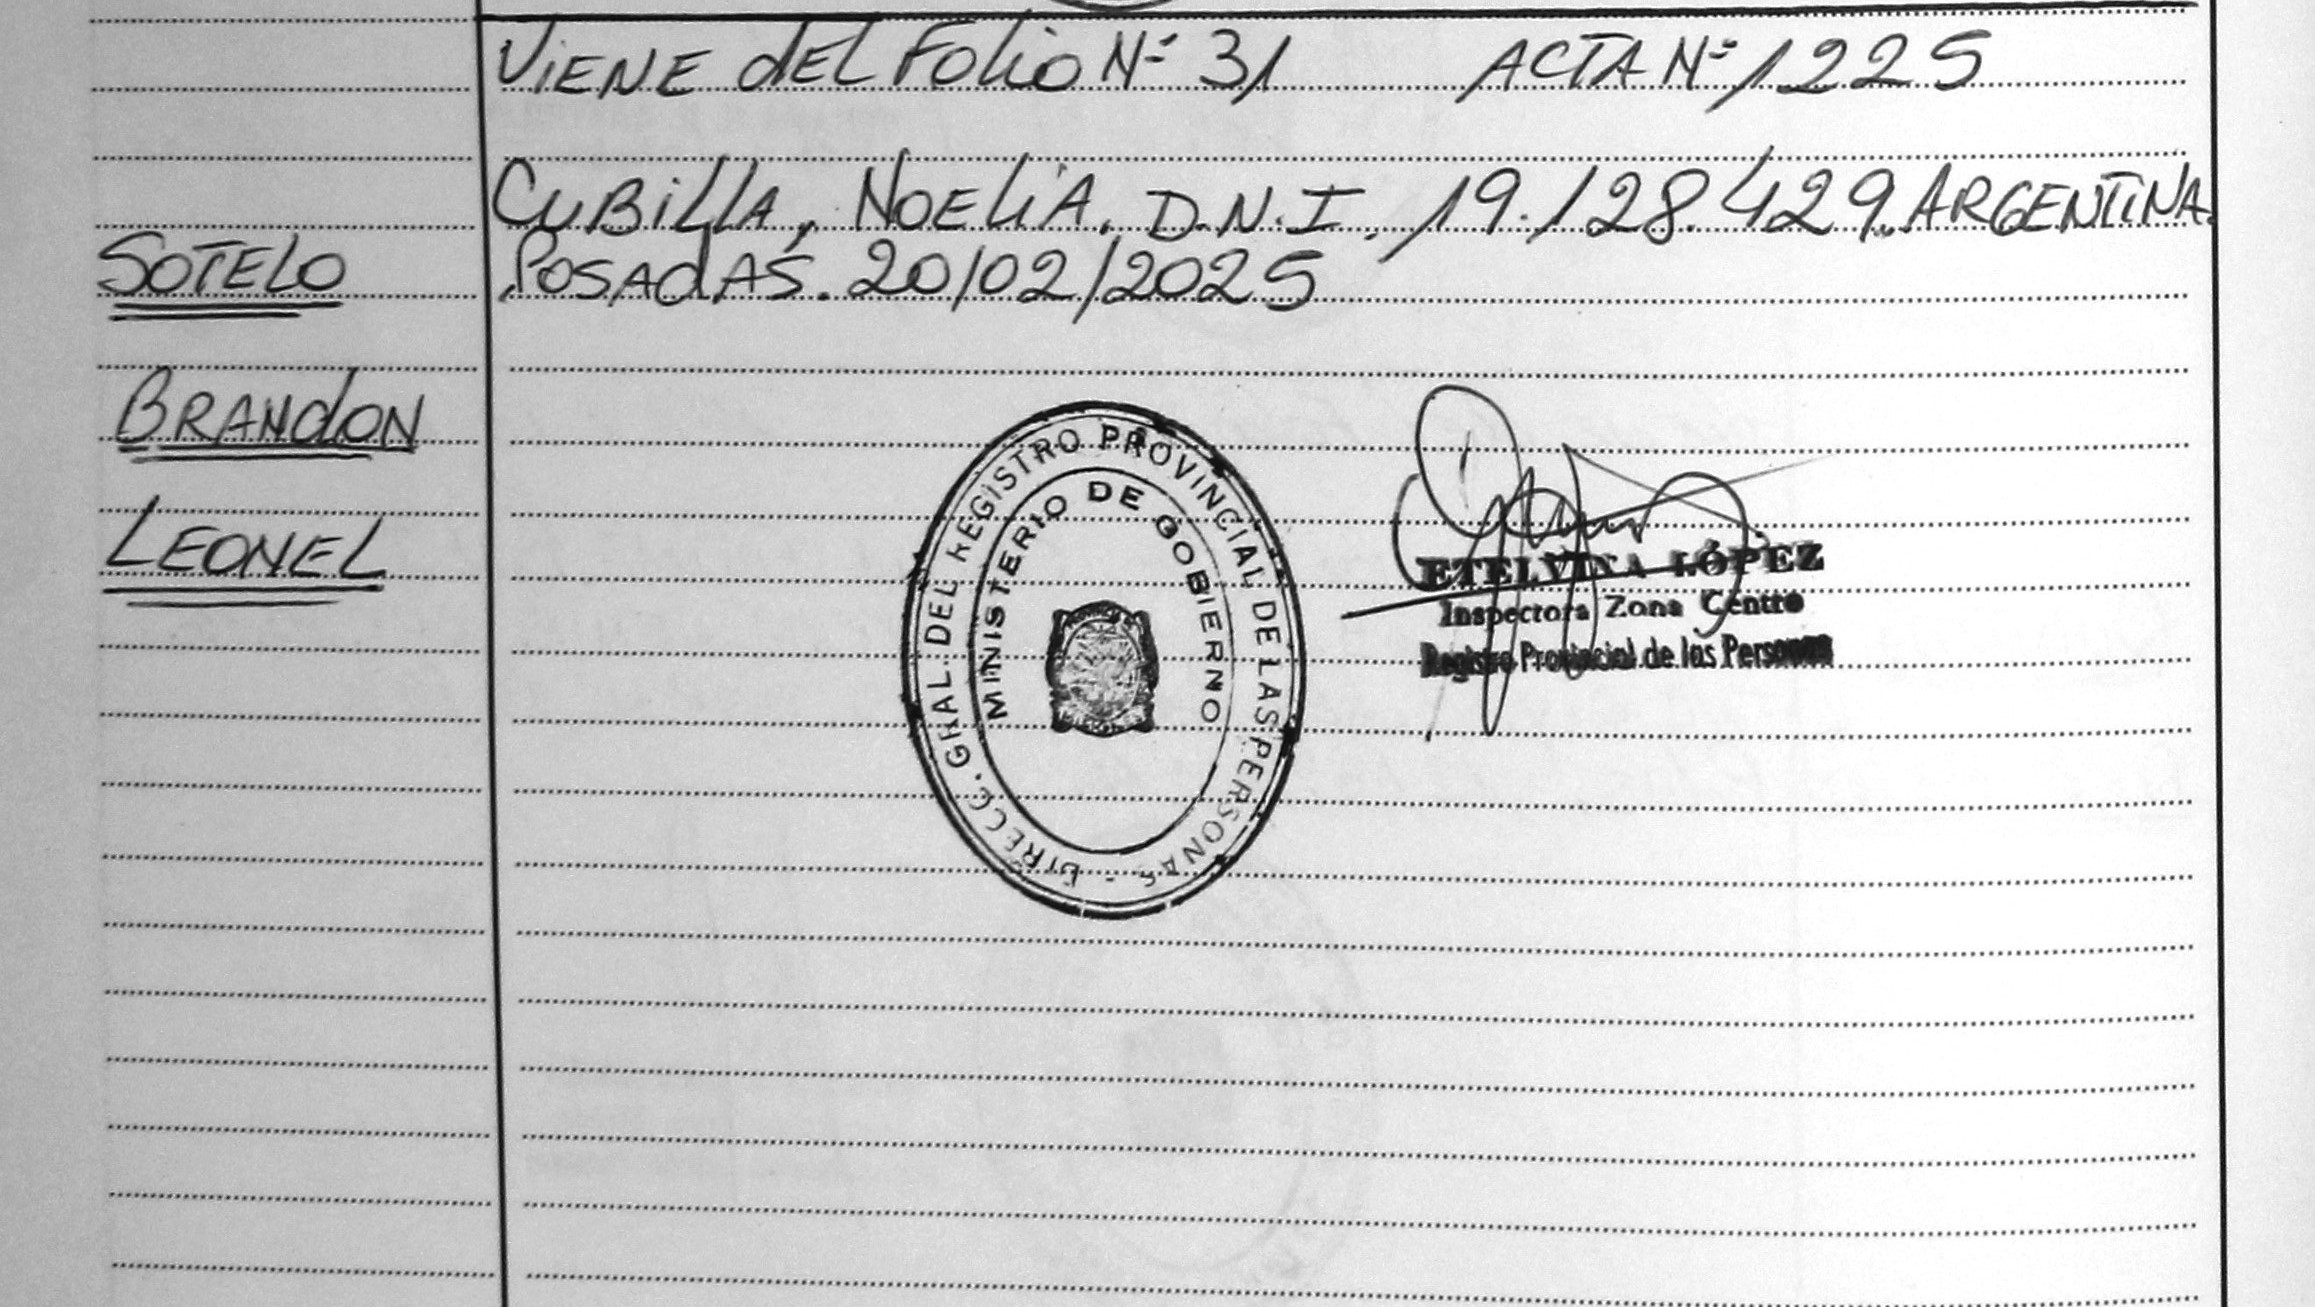 ViENE dEL FoLio Nº 31 ACTA Nº 1225
CUBiLLA, NOELiA. D.N.I. 19.128.429. ARGENTINA.
POSAdAS. 20/02/2025
SOTELO
BRANdON
LEONEL
DIRECC. GRAL. DEL REGISTRO PROVINCIAL DE LAS PERSONAS -
MINISTERIO DE GOBIERNO
ETELVINA LÓPEZ
Inspectora Zona Centro
Registro Provincial de las Personas